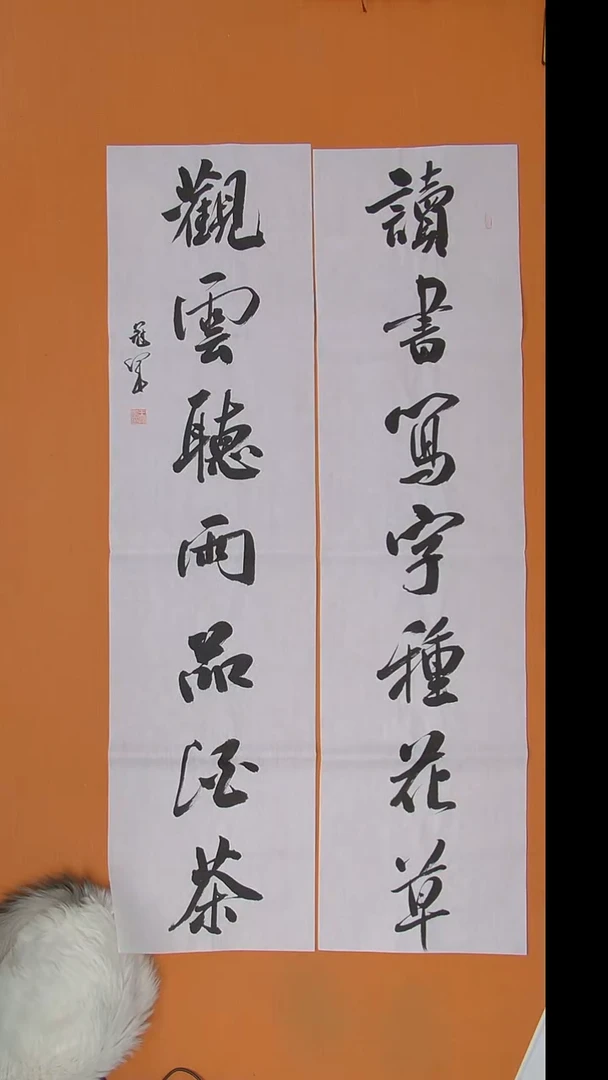 讀書寫字種花草
觀雲聽雨品酒茶
冠軍